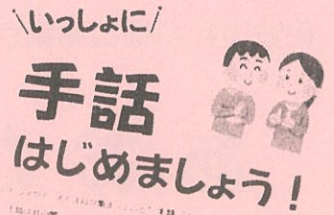 \いっしょに/
手話
はじめましょう！